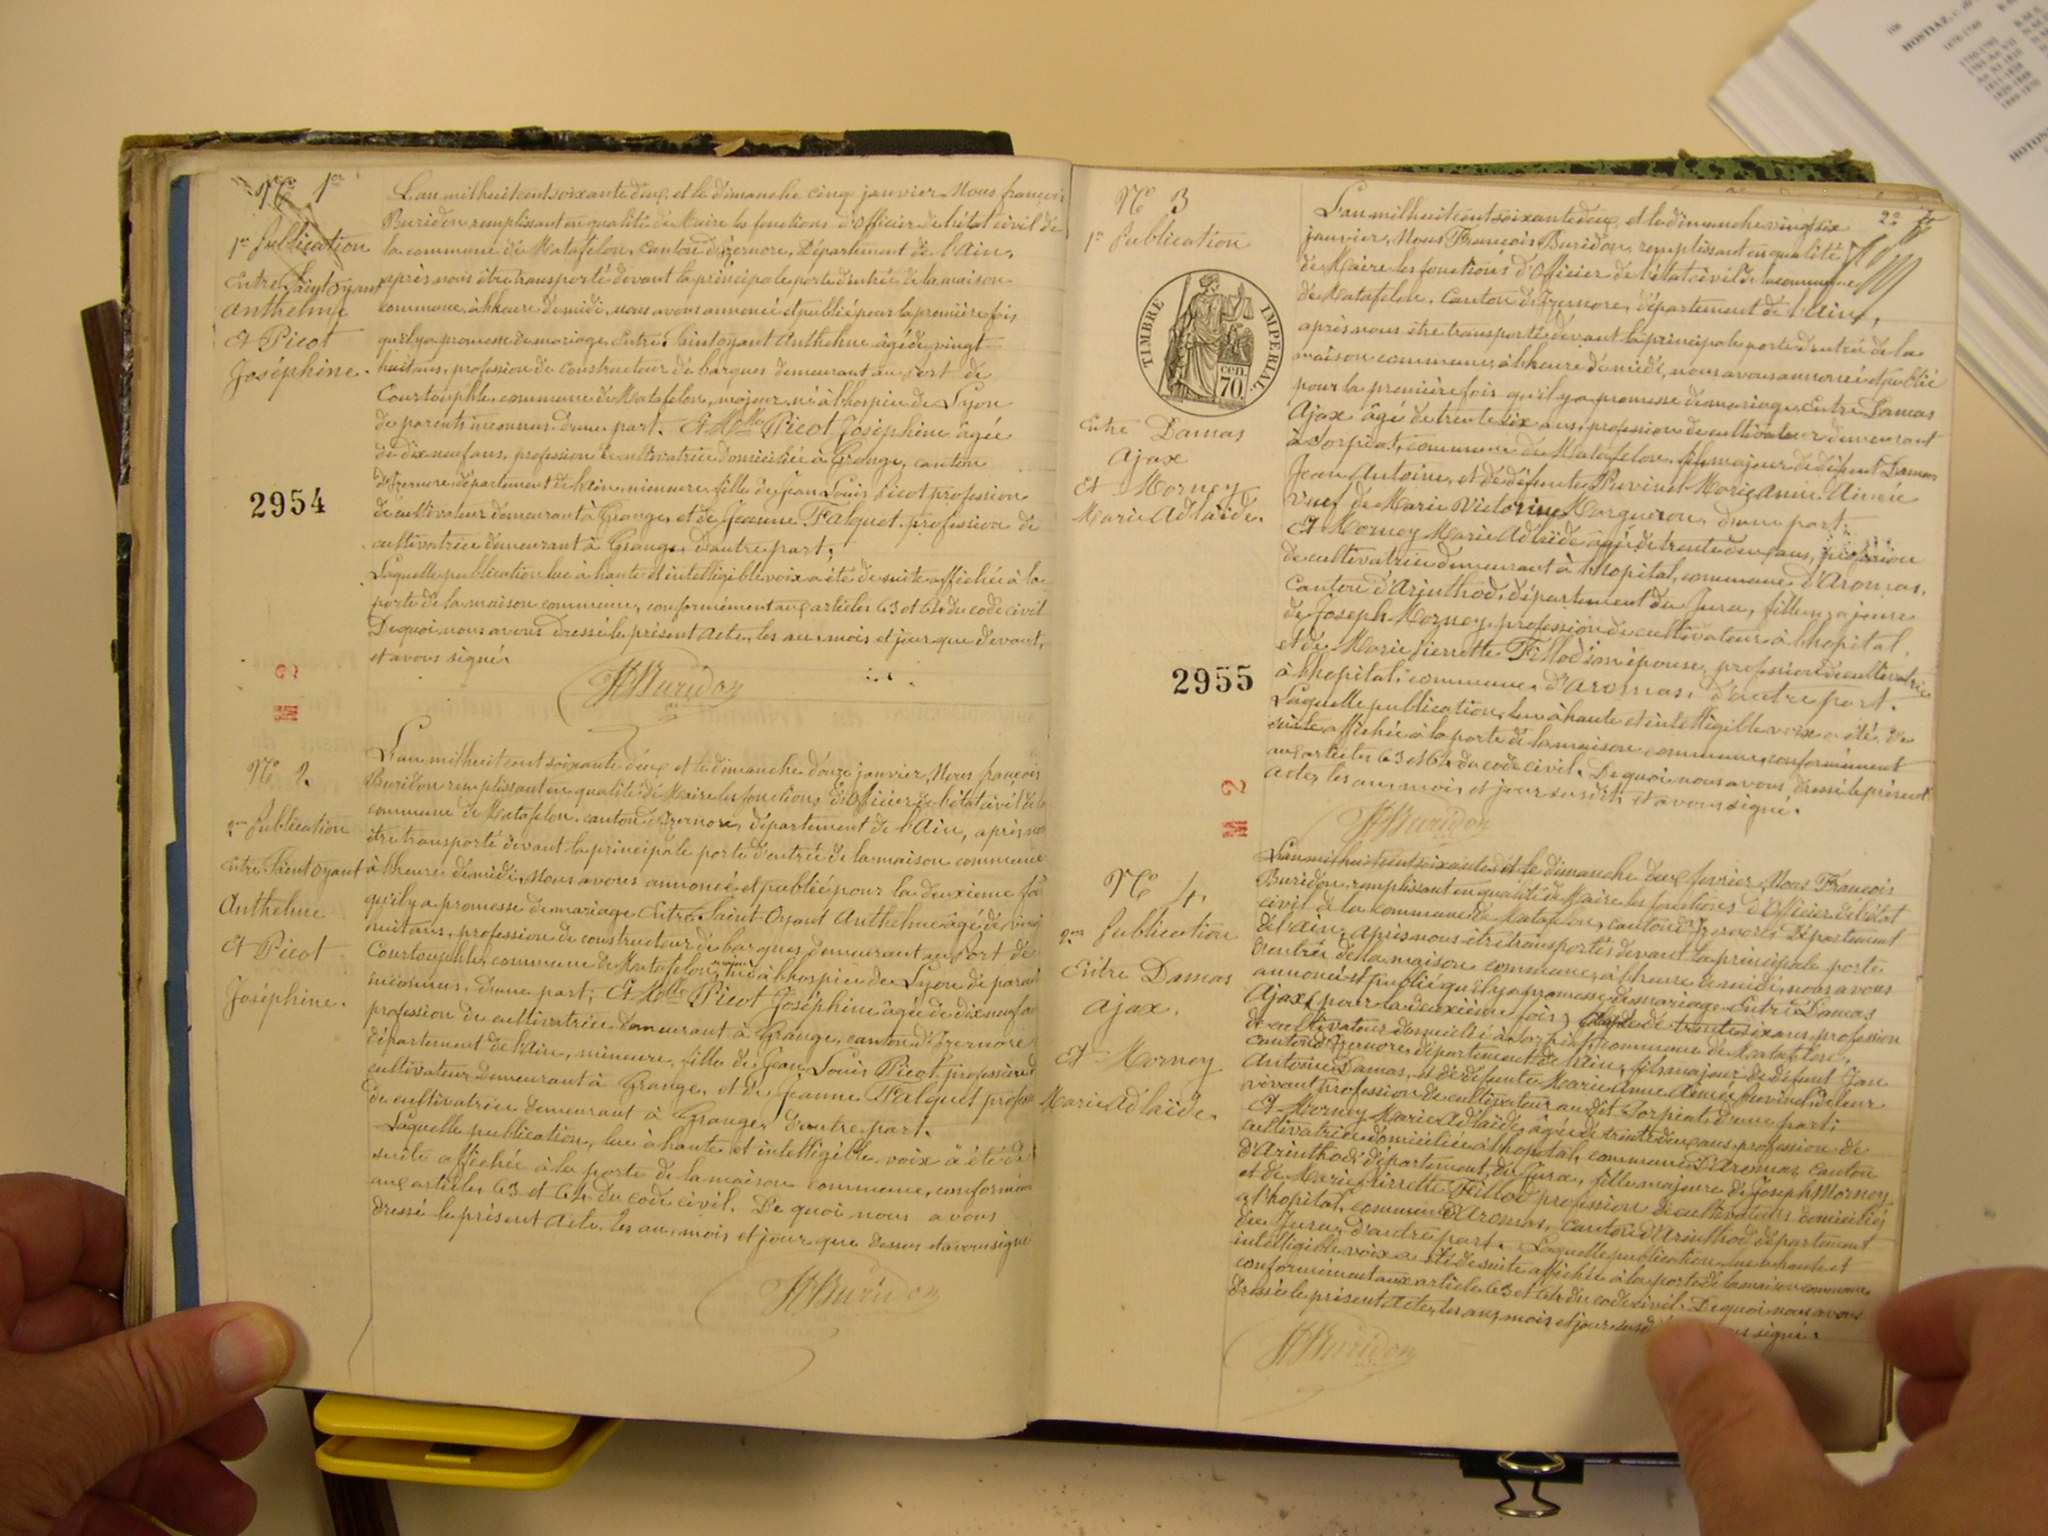 No 1er
1re Publication
Entre Saint Oyant
Anthelme
Et Picot
Joséphine.
L'an mil huit cent soixante deux et le dimanche cinq janvier. Nous françois
Buridon remplissant en qualité de Maire les fonctions d'Officier de l'état civil de
la commune de Matafelon, Canton d'Izernore, Département de l'Ain,
après nous être transporté devant la principale porte d'entrée de la maison
commune, à l'heure de midi, nous avons annoncé et publié pour la première fois
qu'il y a promesse de mariage, Entre Saint oyant Anthelme âgé de vingt
huit ans, profession de Constructeur de barques demeurant au Port de
Courtouphle, commune de Matafelon, majeur, né à l'hospice de Lyon
de parents inconnus d'une part. Et Melle Picot Joséphine âgée
de dix neuf ans, profession de cultivatrice domiciliée à Grange, canton
d'Izernore, département de l'Ain, mineure, fille de Jean Louis Picot profession
de cultivateur demeurant à Grange, et de Jeanne Falquet profession de
cultivatrice demeurant à Grange, d'autre part,
Laquelle publication lue à haute et intelligible voix a été de suite affichée à la
porte de la maison commune, conformément aux articles 63 et 64 du code civil
De quoi nous avons dressé le présent acte, les an, mois et jour que devant,
et avons signé.
Buridon
2954
No 2.
2me Publication
Entre Saint Oyant
Anthelme
Et Picot
Joséphine.
L'an mil huit cent soixante deux et le dimanche douze janvier, Nous françois
Buridon remplissant en qualité de Maire les fonctions d'Officier de l'état civil de la
commune de Matafelon, canton d'Izernore, département de l'Ain, après nous
être transporté devant la principale porte d'entrée de la maison commune
à l'heure de midi, Nous avons annoncé et publié pour la deuxième fois
qu'il y a promesse de mariage Entre Saint Oyant Anthelme âgé de vingt
huit ans, profession de constructeur de barques demeurant au Port de
Courtouphle, commune de Matafelon, majeur né à l'hospice de Lyon de parents
inconnus, d'une part; Et Melle Picot Joséphine âgée de dix neuf ans
profession de cultivatrice demeurant à Grange, canton d'Izernore
département de l'Ain, mineure, fille de Jean Louis Picot profession de
cultivateur demeurant à Grange, et de Jeanne Falquet profession
de cultivatrice demeurant à Grange, d'autre part.
Laquelle publication, lue à haute et intelligible voix a été de
suite affichée à la porte de la maison commune, conformément
aux articles 63 et 64 du code civil. De quoi nous avons
dressé le présent acte, les an, mois et jour que dessus et avons signé
Buridon
No 3
1re Publication
TIMBRE IMPERIAL
CEN. 70
Entre Damas
Ajax
Et Morney
Marie Adelaïde.
2e
L'an mil huit cent soixante deux et le dimanche vingt six
janvier, Nous François Buridon, remplissant en qualité
de Maire les fonctions d'Officier de l'état civil de la commune
de Matafelon, Canton d'Izernore, département de l'Ain,
après nous être transporté devant la principale porte d'entrée de la
maison commune, à l'heure de midi, nous avons annoncé et publié
pour la première fois qu'il y a promesse de mariage, Entre Damas
Ajax âgé de trente six ans, profession de cultivateur demeurant
à Corpiat, commune de Matafelon, fils majeur de défunt Damas
Jean Antoine, et de défunte Marie Anne Aimée
veuf de Marie Victorine d'une part;
Et Morney Marie Adelaïde âgée de trente deux ans, profession
de cultivatrice demeurant à l'hopital, commune d'Aromas,
Canton d'Arinthod, département du Jura, fille majeure
de Joseph Morney, profession de cultivateur à l'hopital,
et de Marie Pierrette Fillod son épouse, profession de cultivatrice
à l'hopital, commune d'Aromas, d'autre part.
Laquelle publication, lue à haute et intelligible voix a été de
suite affichée à la porte de la maison commune, conformément
aux articles 63 et 64 du code civil. De quoi nous avons dressé le présent
acte, les an, mois et jour susdits et avons signé.
Buridon
2955
No 4.
2me Publication
Entre Damas
Ajax.
Et Morney
Marie Adelaïde.
L'an mil huit cent soixante deux et le dimanche deux fevrier, Nous François
Buridon, remplissant en qualité de Maire les fonctions d'Officier de l'état
civil de la commune de Matafelon, canton d'Izernore Département
de l'Ain, après nous être transportés devant la principale porte
d'entrée de la maison commune, à l'heure de midi, nous avons
annoncé et publié qu'il y a promesse de mariage Entre Damas
Ajax (pour la deuxième fois) âgé de trente six ans, profession
de cultivateur domicilié à Corpiat commune de Matafelon,
canton d'Izernore, département de l'Ain, fils majeur de défunt Jean
Antoine Damas, et de défunte Marie Anne Aimée de leur
vivant profession de cultivateur au dit Corpiat d'une part;
Et Morney Marie Adelaïde, agée de trente deux ans, profession de
cultivatrice domiciliée à l'hopital, commune d'Aromas canton
d'Arinthod, département du Jura, fille majeure de Joseph Morney
et de Marie Pierrette Fillod profession de cultivateurs domiciliés
à l'hopital, commune d'Aromas, canton d'Arinthod département
du Jura, d'autre part. Laquelle publication lue à haute et
intelligible voix a été de suite affichée à la porte de la maison commune
conformément aux articles 63 et 64 du code civil. De quoi nous avons
dressé le présent acte, les an, mois et jour signé.
Buridon
HOSTIAZ